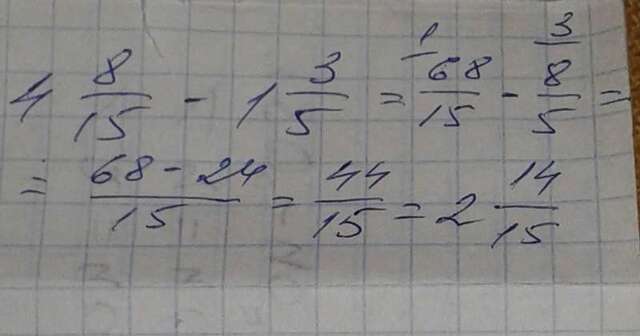 4 8/15 - 1 3/5 = 1/ 68/15 - 3/ 8/5 =
= 68 - 24/15 = 44/15 = 2 14/15